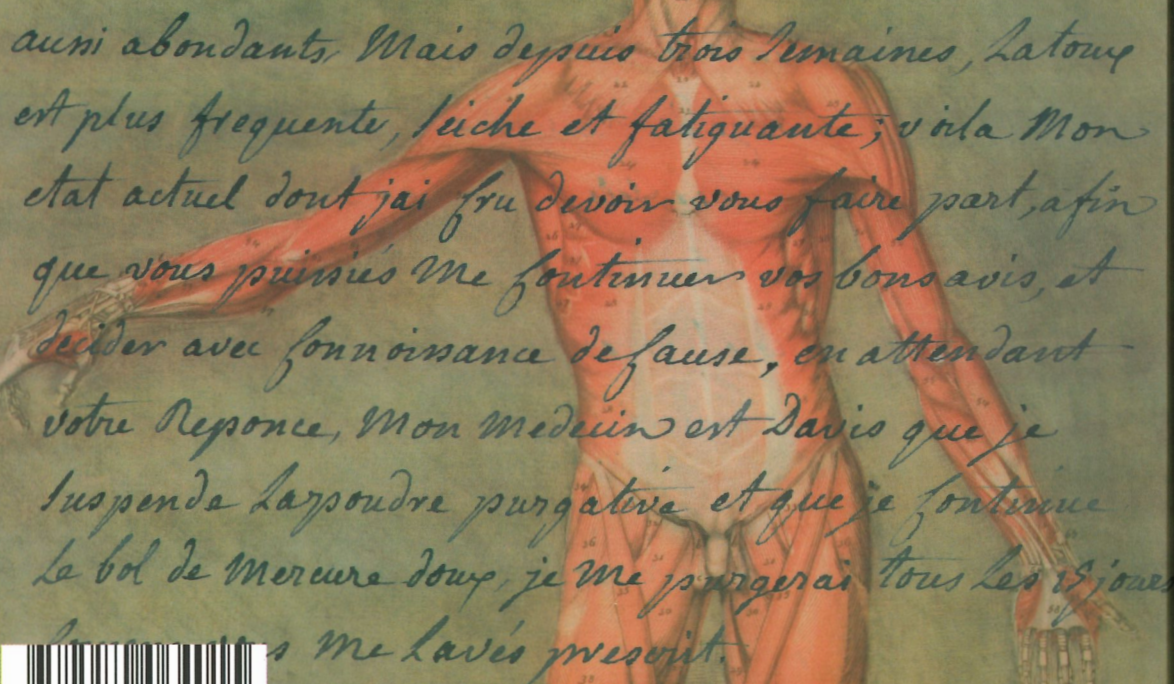 aussi abondants, Mais depuis trois Semaines, Latoux
est plus frequente, seiche et fatiguante; voila Mon
etat actuel dont jai Cru devoir vous faire part, afin
que vous puissiés Me Continuer vos bons avis, et
décider avec Connoissance de Cause, en attendant
votre Reponce, Mon Medecin est Davis que je
Suspende Lapoudre purgative et que je Continue
Le bol de Mercure doux, je Me purgerai tous Les 15 jours
Comme vous Me Lavés prescrit.